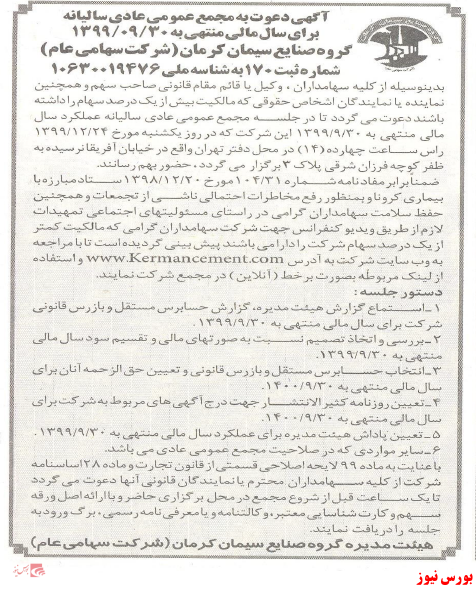 آگهی دعوت به مجمع عمومی عادی سالیانه
برای سال مالی منتهی به ۱۳۹۹/۰۹/۳۰
گروه صنایع سیمان کرمان (شرکت سهامی عام)
شماره ثبت ۱۷۰ به شناسه ملی ۱۰۶۳۰۰۱۹۴۷۶
بدینوسیله از کلیه سهامداران، وکیل یا قائم مقام قانونی صاحب سهم و همچنین
نماینده یا نمایندگان اشخاص حقوقی که مالکیت بیش از یک درصد سهام را داشته
باشند دعوت می گردد تا در جلسه مجمع عمومی عادی سالیانه عملکرد سال
مالی منتهی به ۱۳۹۹/۹/۳۰ این شرکت که در روز یکشنبه مورخ ۱۳۹۹/۱۲/۲۴
راس ساعت چهارده (۱۴) در محل دفتر تهران واقع در خیابان آفریقا نرسیده به
ظفر کوچه فرزان شرقی پلاک ۳ برگزار می گردد، حضور بهم رسانند.
ضمناً برابر مفاد نامه شماره ۱۰۴/۳۱ مورخ ۱۳۹۸/۱۲/۲۰ ستاد مبارزه با
بیماری کرونا و بمنظور رفع مخاطرات احتمالی ناشی از تجمعات و همچنین
حفظ سلامت سهامداران گرامی در راستای مسئولیتهای اجتماعی تمهیدات
لازم از طریق ویدیو کنفرانس جهت شرکت سهامداران گرامی که مالکیت کمتر
از یک درصد سهام شرکت را دارا می باشند پیش بینی گردیده است تا با مراجعه
به وب سایت شرکت به آدرس www.Kermancement.com و استفاده
از لینک مربوطه بصورت برخط (آنلاین) در مجمع شرکت نمایند.
دستور جلسه:
۱-استماع گزارش هیئت مدیره، گزارش حسابرس مستقل و بازرس قانونی
شرکت برای سال مالی منتهی به ۱۳۹۹/۹/۳۰.
۲-بررسی و اتخاذ تصمیم نسبت به صورتهای مالی و تقسیم سود سال مالی
منتهی به ۱۳۹۹/۹/۳۰.
۳-انتخاب حسابرس مستقل و بازرس قانونی و تعیین حق الزحمه آنان برای
سال مالی منتهی به ۱۴۰۰/۹/۳۰.
۴-تعیین روزنامه کثیر الانتشار جهت درج آگهی های مربوط به شرکت برای
سال مالی منتهی به ۱۴۰۰/۹/۳۰.
۵-تعیین پاداش هیئت مدیره برای عملکرد سال مالی منتهی به ۱۳۹۹/۹/۳۰.
۶-سایر مواردی که در صلاحیت مجمع عمومی عادی می باشد.
با عنایت به ماده ۹۹ لایحه اصلاحی قسمتی از قانون تجارت و ماده ۲۸ اساسنامه
شرکت از کلیه سهامداران محترم یا نمایندگان قانونی آنها دعوت می گردد
تا یک ساعت قبل از شروع مجمع در محل برگزاری حاضر و با ارائه اصل ورقه
سهم و کارت شناسایی معتبر، وکالتنامه و یا معرفی نامه رسمی، برگ ورود به
جلسه را دریافت نمایند.
هیئت مدیره گروه صنایع سیمان کرمان (شرکت سهامی عام)
بورس نیوز